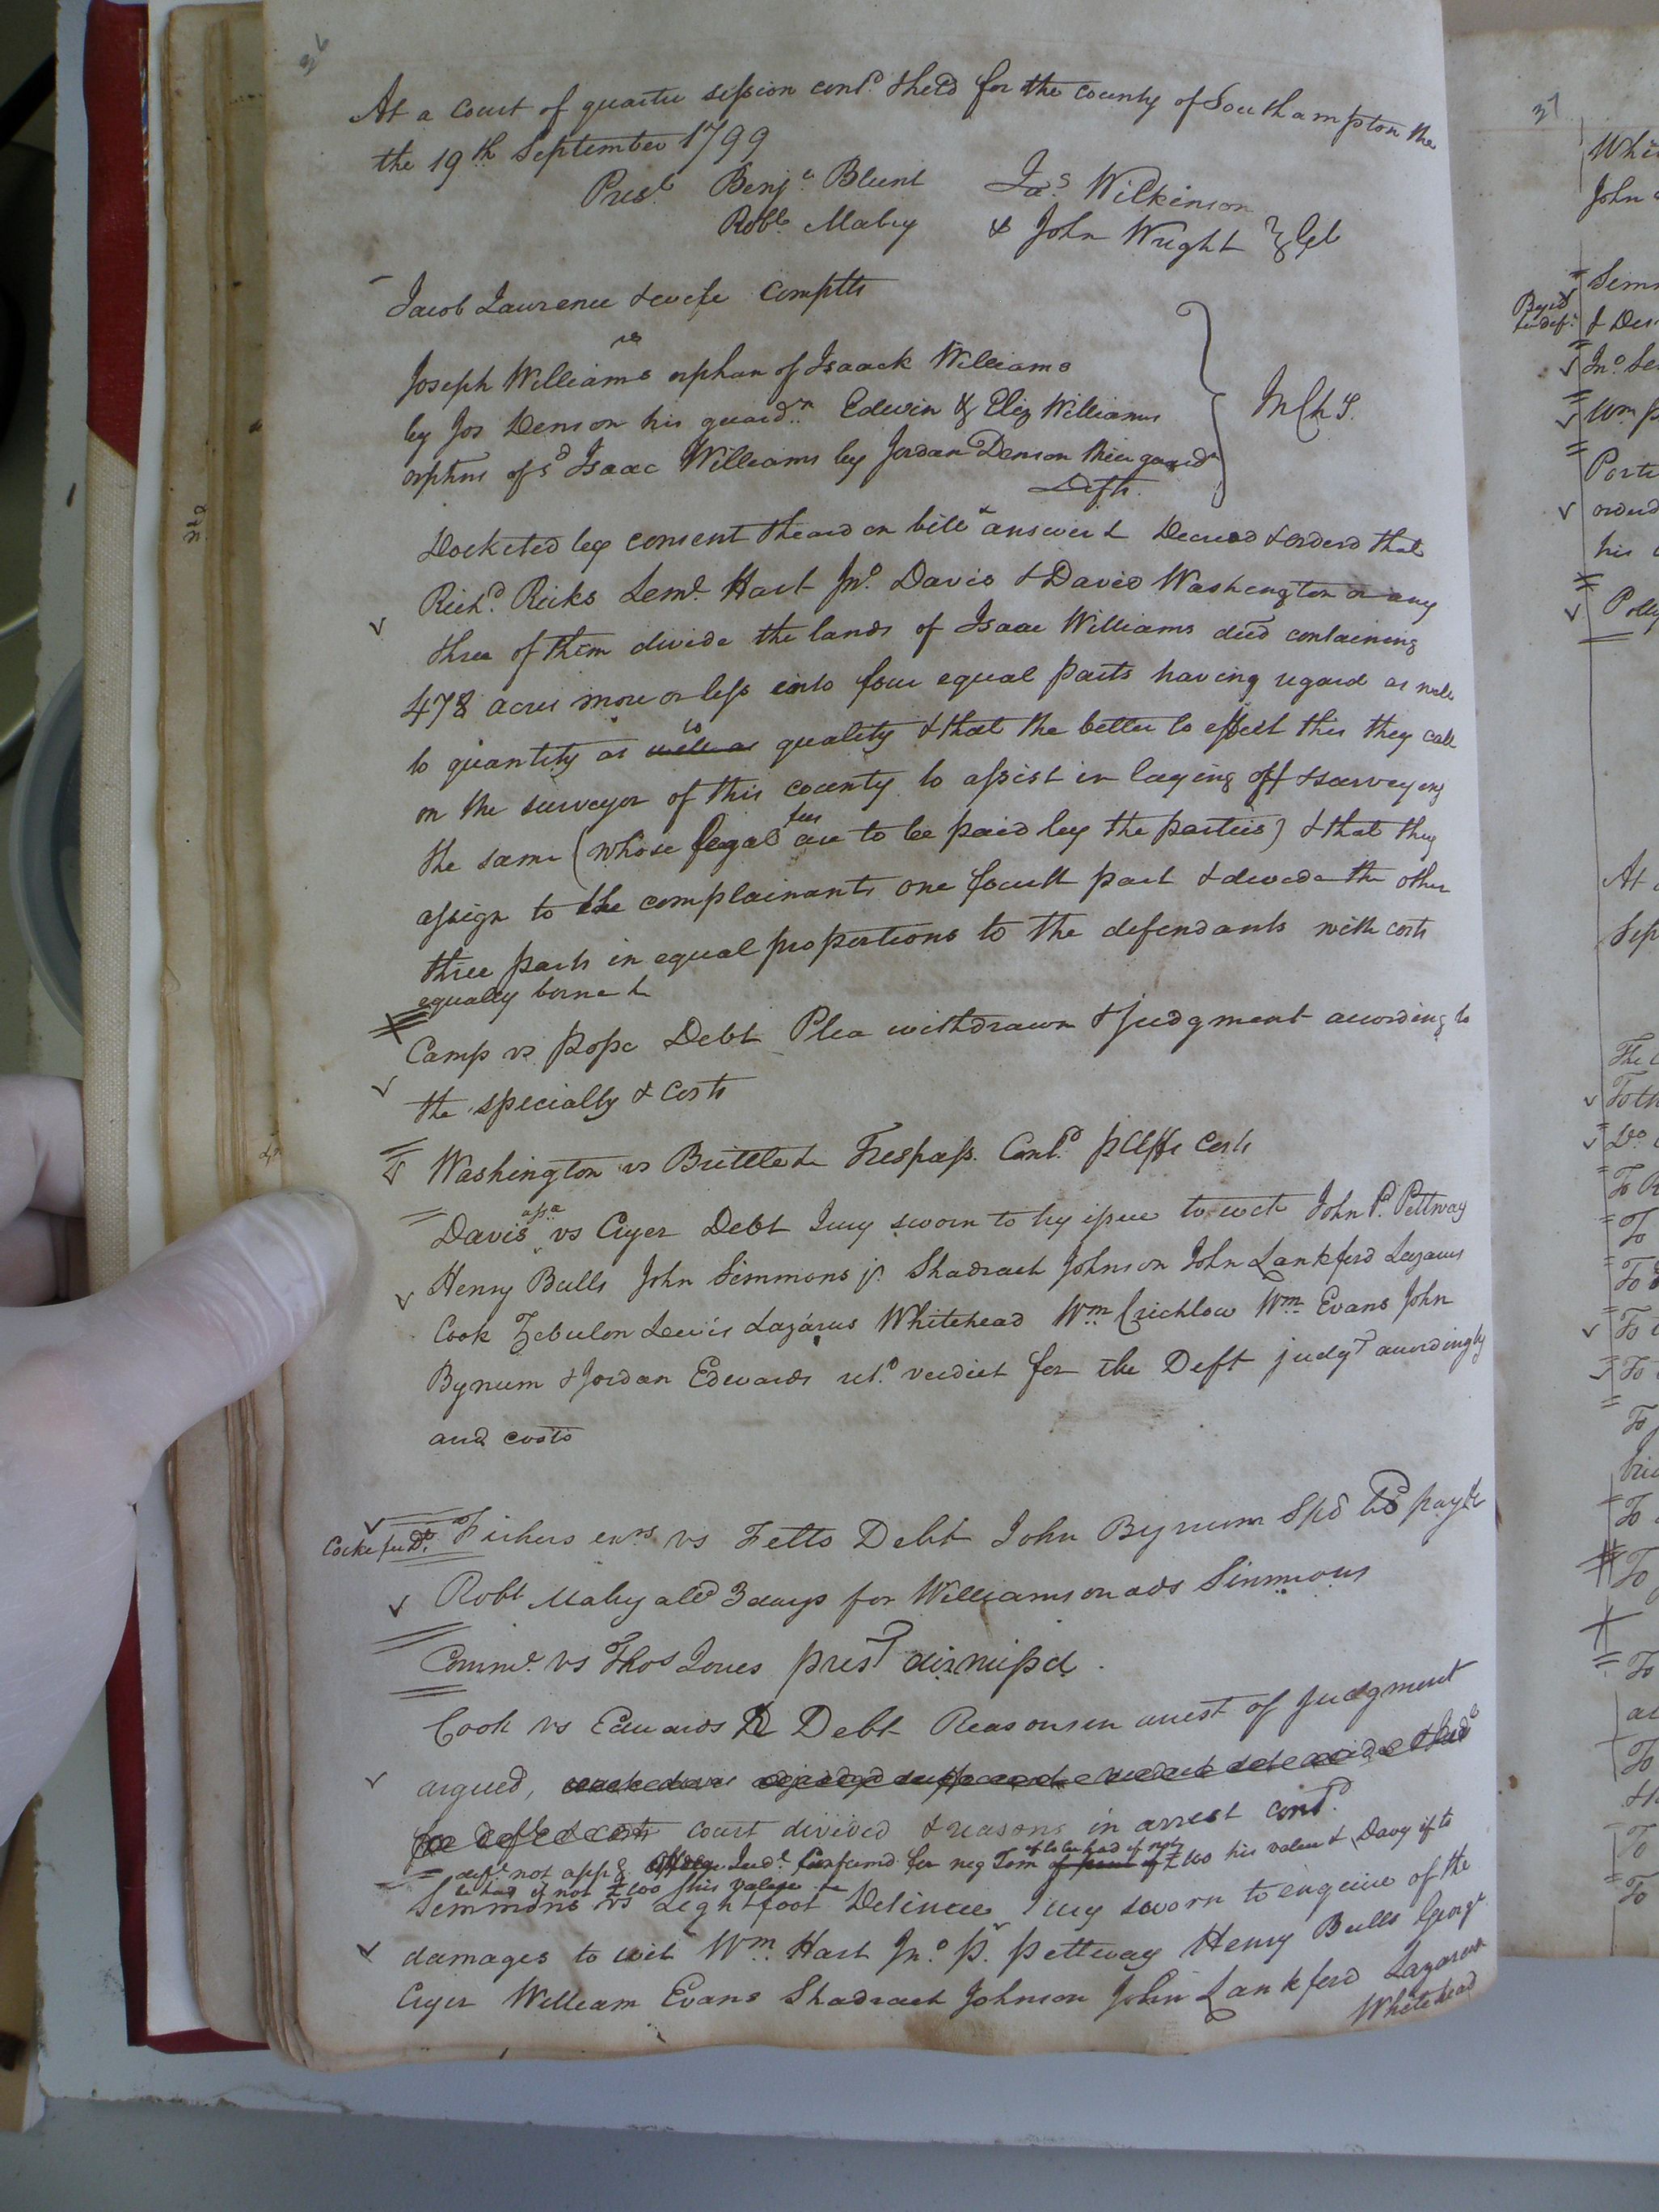 36
At a Court of quarter session cont.d & held for the county of Southampton the
the 19th September 1799
Pres.t Benj.a Blunt Ja.s Wilkinson
Rob.t Mabry & John Wright } Gent
Jacob Lawrence & wife Complts
vs
Joseph Williams orphan of Isaack Williams
by Jos Denson his guard.n Edwin & Eliz Williams
orphns of s.d Isaac Williams by Jordan Denson their guard.n
Defts.
In Ch.
Docketed by consent & heard on bill & answer & Decreed & orderd that
Rich.d Ricks Lem.l Hart Jn.o Davis & David Washington or any
three of them divide the lands of Isaac Williams decd containing
478 acres more or less into four equal parts having regard as well
to quantity as well as to quality & that the better to effect this they call
on the surveyor of this county to assist in laying off & surveying
the same (whose legal fees are to be paid by the parties) & that they
assign to the complainants one fourth part & devide the other
three parts in equal proportions to the defendants with costs
equally borne &
Camp vs Pope Debt Plea withdrawn & Judgment according to
the specialty & Costs
Washington vs Brittle & Trespass. Cont.d pltffs Costs
Davis ass.e vs Cryer Debt Jury sworn to try issue to wit John P. Pettway
Henry Bulls John Simmons jr. Shadrach Johnson John Lankford Lazarus
Cook Zebulon Lewis Lazarus Whitehead Wm Crichlow Wm Evans John
Bynum & Jordan Edwards ret.d verdict for the Deft judg.t accordingly
and costs
Fishers exrs vs Felts Debt John Bynum Sp.b pay &
Robt Mabry alld 3 days for Williamson ads Simmons
Commw. vs Thos Jones prest dismissd.
Cook vs Edwards Debt Reasons in arrest of judgment
argued,
court divided & reasons in arrest cont.d
deft not appg Jud.t Confirmd for neg Tom if to be had if not £100 his value & Davy if to
be had if not £100 his value &
Simmons vs Lightfoot Detinue Jury sworn to enquire of the
damages to wit Wm. Hart Jn.o P. Pettway Henry Bulls George
Cryer William Evans Shadrach Johnson John Lankford Lazarus
Whitehead
37